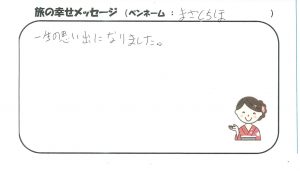 旅の幸せメッセージ（ペンネーム：まさとらほ）
一生の思い出になりました。